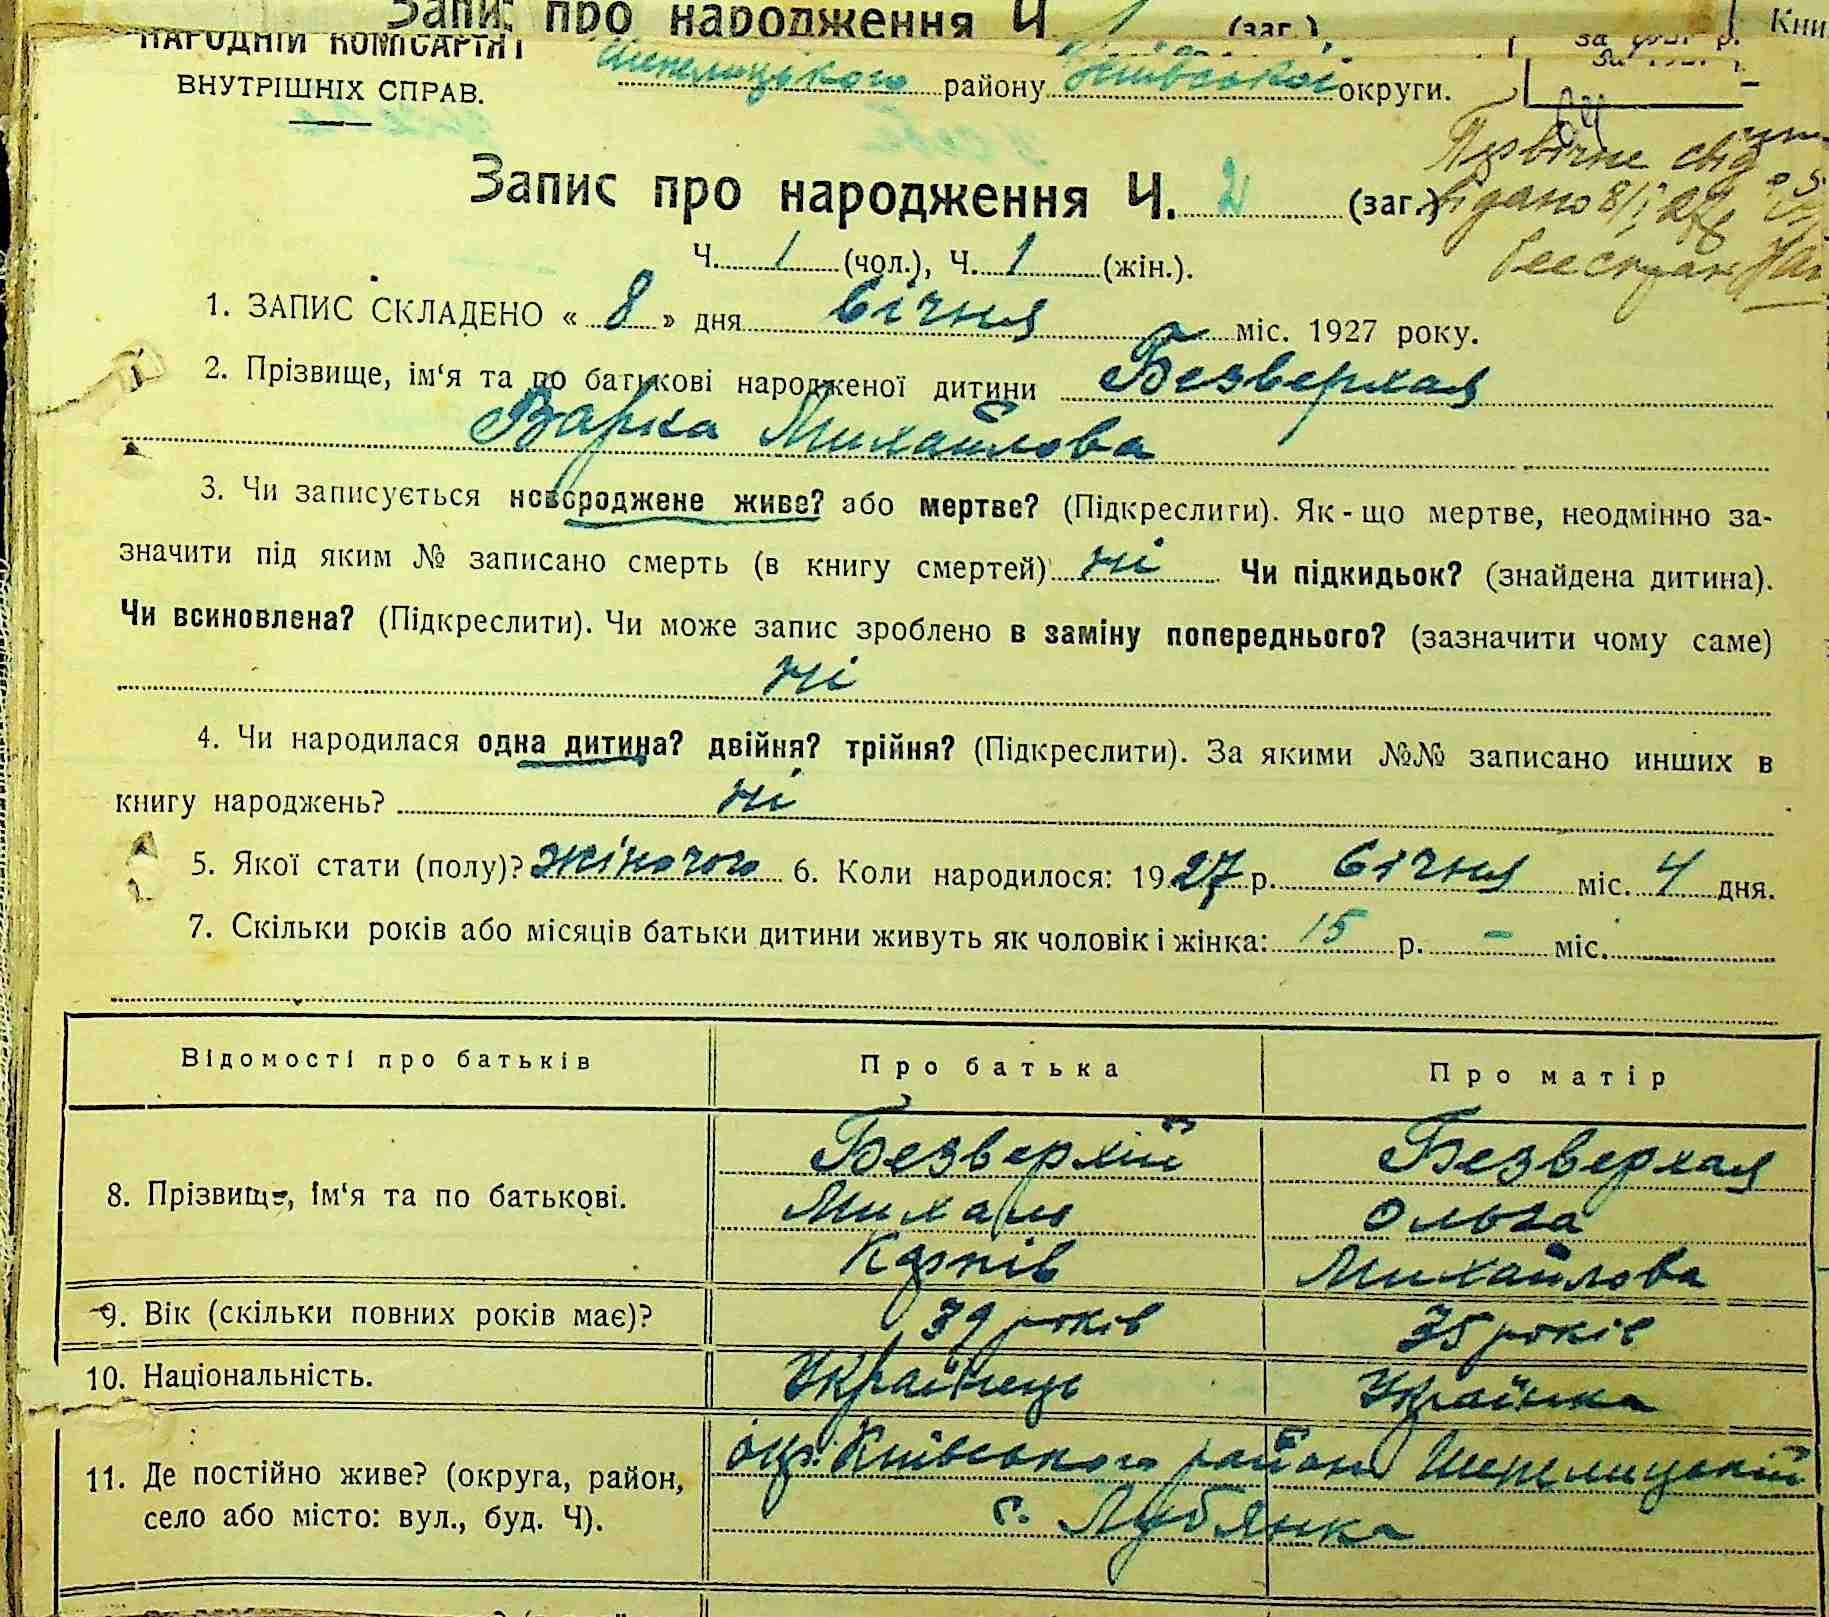 Запис про народження Ч. 1 (заг.) Кни
НАРОДНІЙ КОМІСАРІЯТ
ВНУТРІШНІХ СПРАВ.
Шепелицького району Київської округи.
Запис про народження Ч. 2 (заг.)
Первічне свід
видано 8/I 27
Ч. 1 (чол.), Ч. 1 (жін.).
1. ЗАПИС СКЛАДЕНО « 8 » дня січня міс. 1927 року.
2. Прізвище, ім‘я та по батькові народженої дитини Безверхая
Варка Михайлова
3. Чи записується новороджене живе? або мертве? (Підкреслити). Як-що мертве, неодмінно за-
значити під яким № записано смерть (в книгу смертей) ні Чи підкидьок? (знайдена дитина).
Чи всиновлена? (Підкреслити). Чи може запис зроблено в заміну попереднього? (зазначити чому саме)
ні
4. Чи народилася одна дитина? двійня? трійня? (Підкреслити). За якими №№ записано инших в
книгу народжень? ні
5. Якої стати (полу)? жіночого 6. Коли народилося: 1927 р. січня міс. 4 дня.
7. Скільки років або місяців батьки дитини живуть як чоловік і жінка: 15 р. – міс.
Відомості про батьків Про батька Про матір
8. Прізвище, ім‘я та по батькові. Безверхій Безверхая
Михайло Ольга
Карпів Михайлова
9. Вік (скільки повних років має)? 39 років 35 років
10. Національність. Українець Українка
11. Де постійно живе? (округа, район, окр. Київського района Шепелицький
село або місто: вул., буд. Ч). с. Лубянка